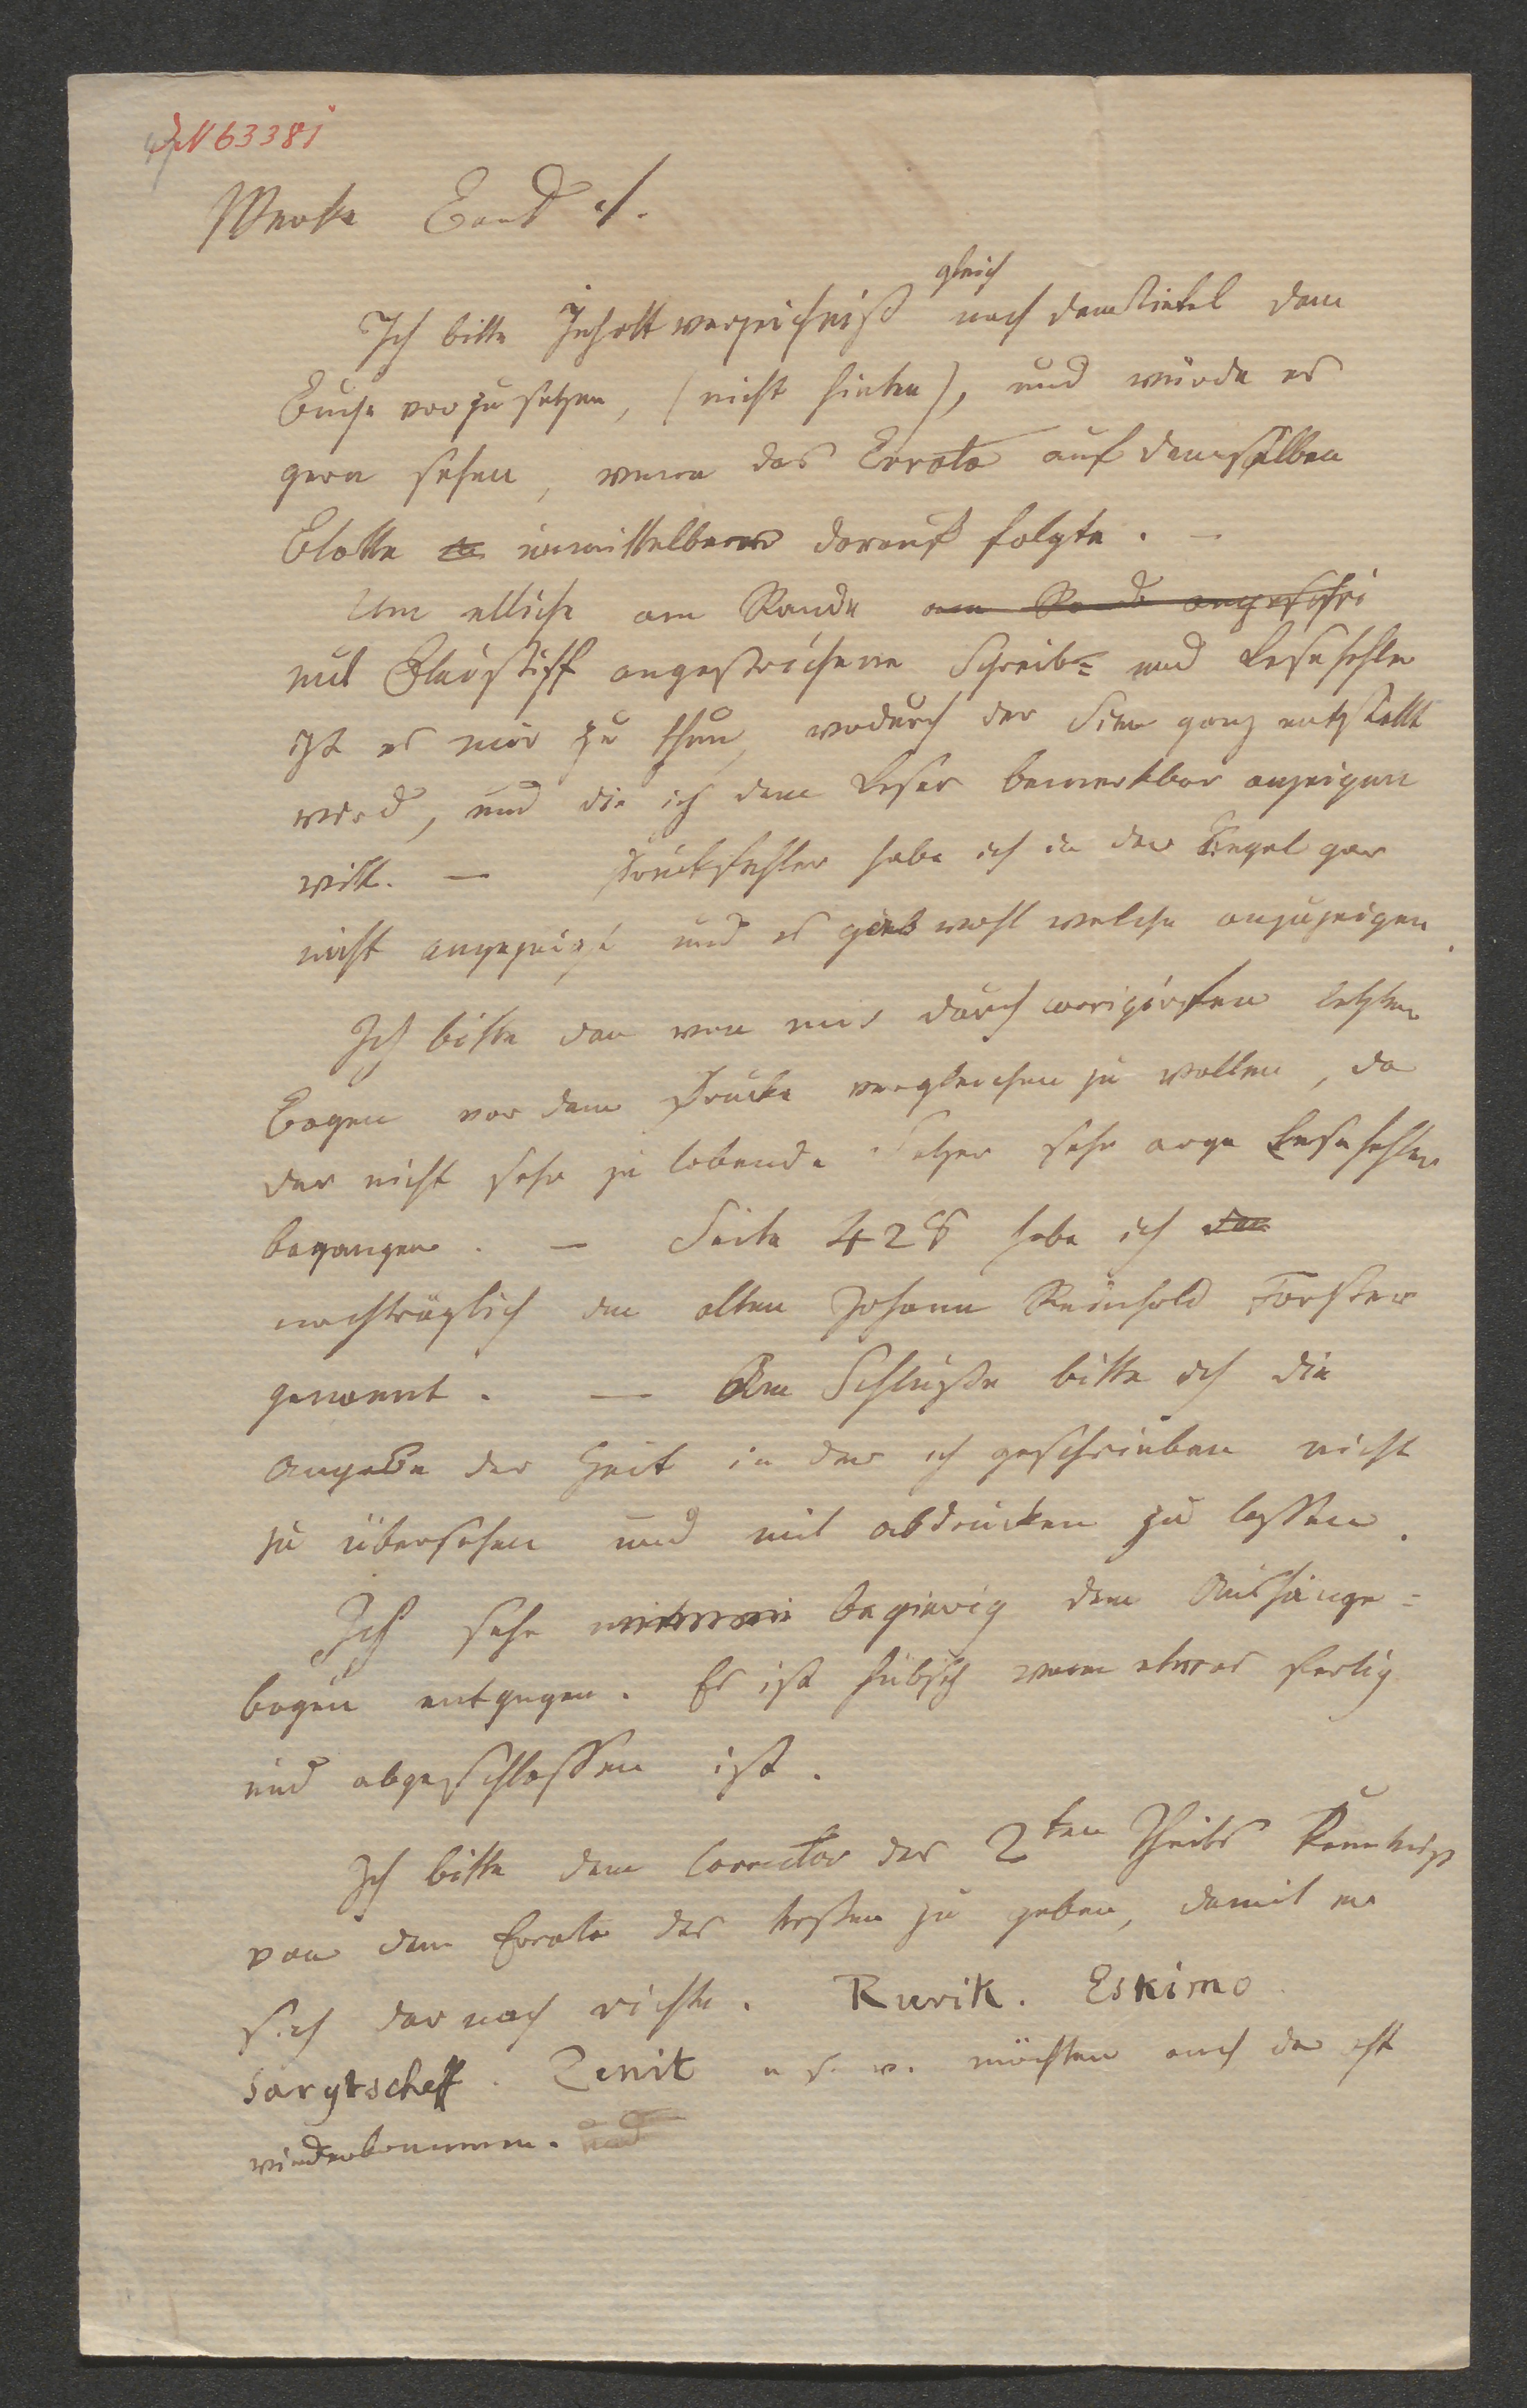 IN 63381
Werke Band 1.
gleich
Ich bitte Inhaltverzeichniß nach dem Titel dem
Buche vorzusetzen, (nicht hinten), und würde es
gern sehen, wenn das Errata auf demselben
Blatte unmittelbar darauf folgte. –
Um etliche am Rande am Rande angeschri
mit Bleistift angestrichene Schreib= und Lesefehler
ist es mir zu thun, wodurch der Sinn ganz entstellt
wird, und die ich dem Leser bemerkbar anzeigen
will. — Druckfehler habe ich in der Regel gar
nicht angezeigt und es gieb wohl welche anzuzeigen.
Ich bitte den von mir durch corrigirten letzten
Bogen vor dem Drucke vergleichen zu wollen, da
der nicht sehr zu lobende Setzer sehr arge Lesefehler
begangen. — Seite 428 habe ich den
nachträglich den alten Johann Reinhold Forster
genannt. — Am Schluße bitte ich die
Angabe der Zeit in der ich geschrieben nicht
zu übersehen und mit abdrucken zu lassen.
Ich sehe begierig dem Aushänge=
bogen entgegen. Es ist hübsch wenn etwas fertig
und abgeschlossen ist.
Ich bitte dem Corrector des 2ten Theils Kenntniß
von dem Errata des ersten zu geben, damit er
sich darnach richte. Rurik. Eskimo.
Sarytscheff. Zenit u. s. w. möchten auch da oft
wiederkommen. und